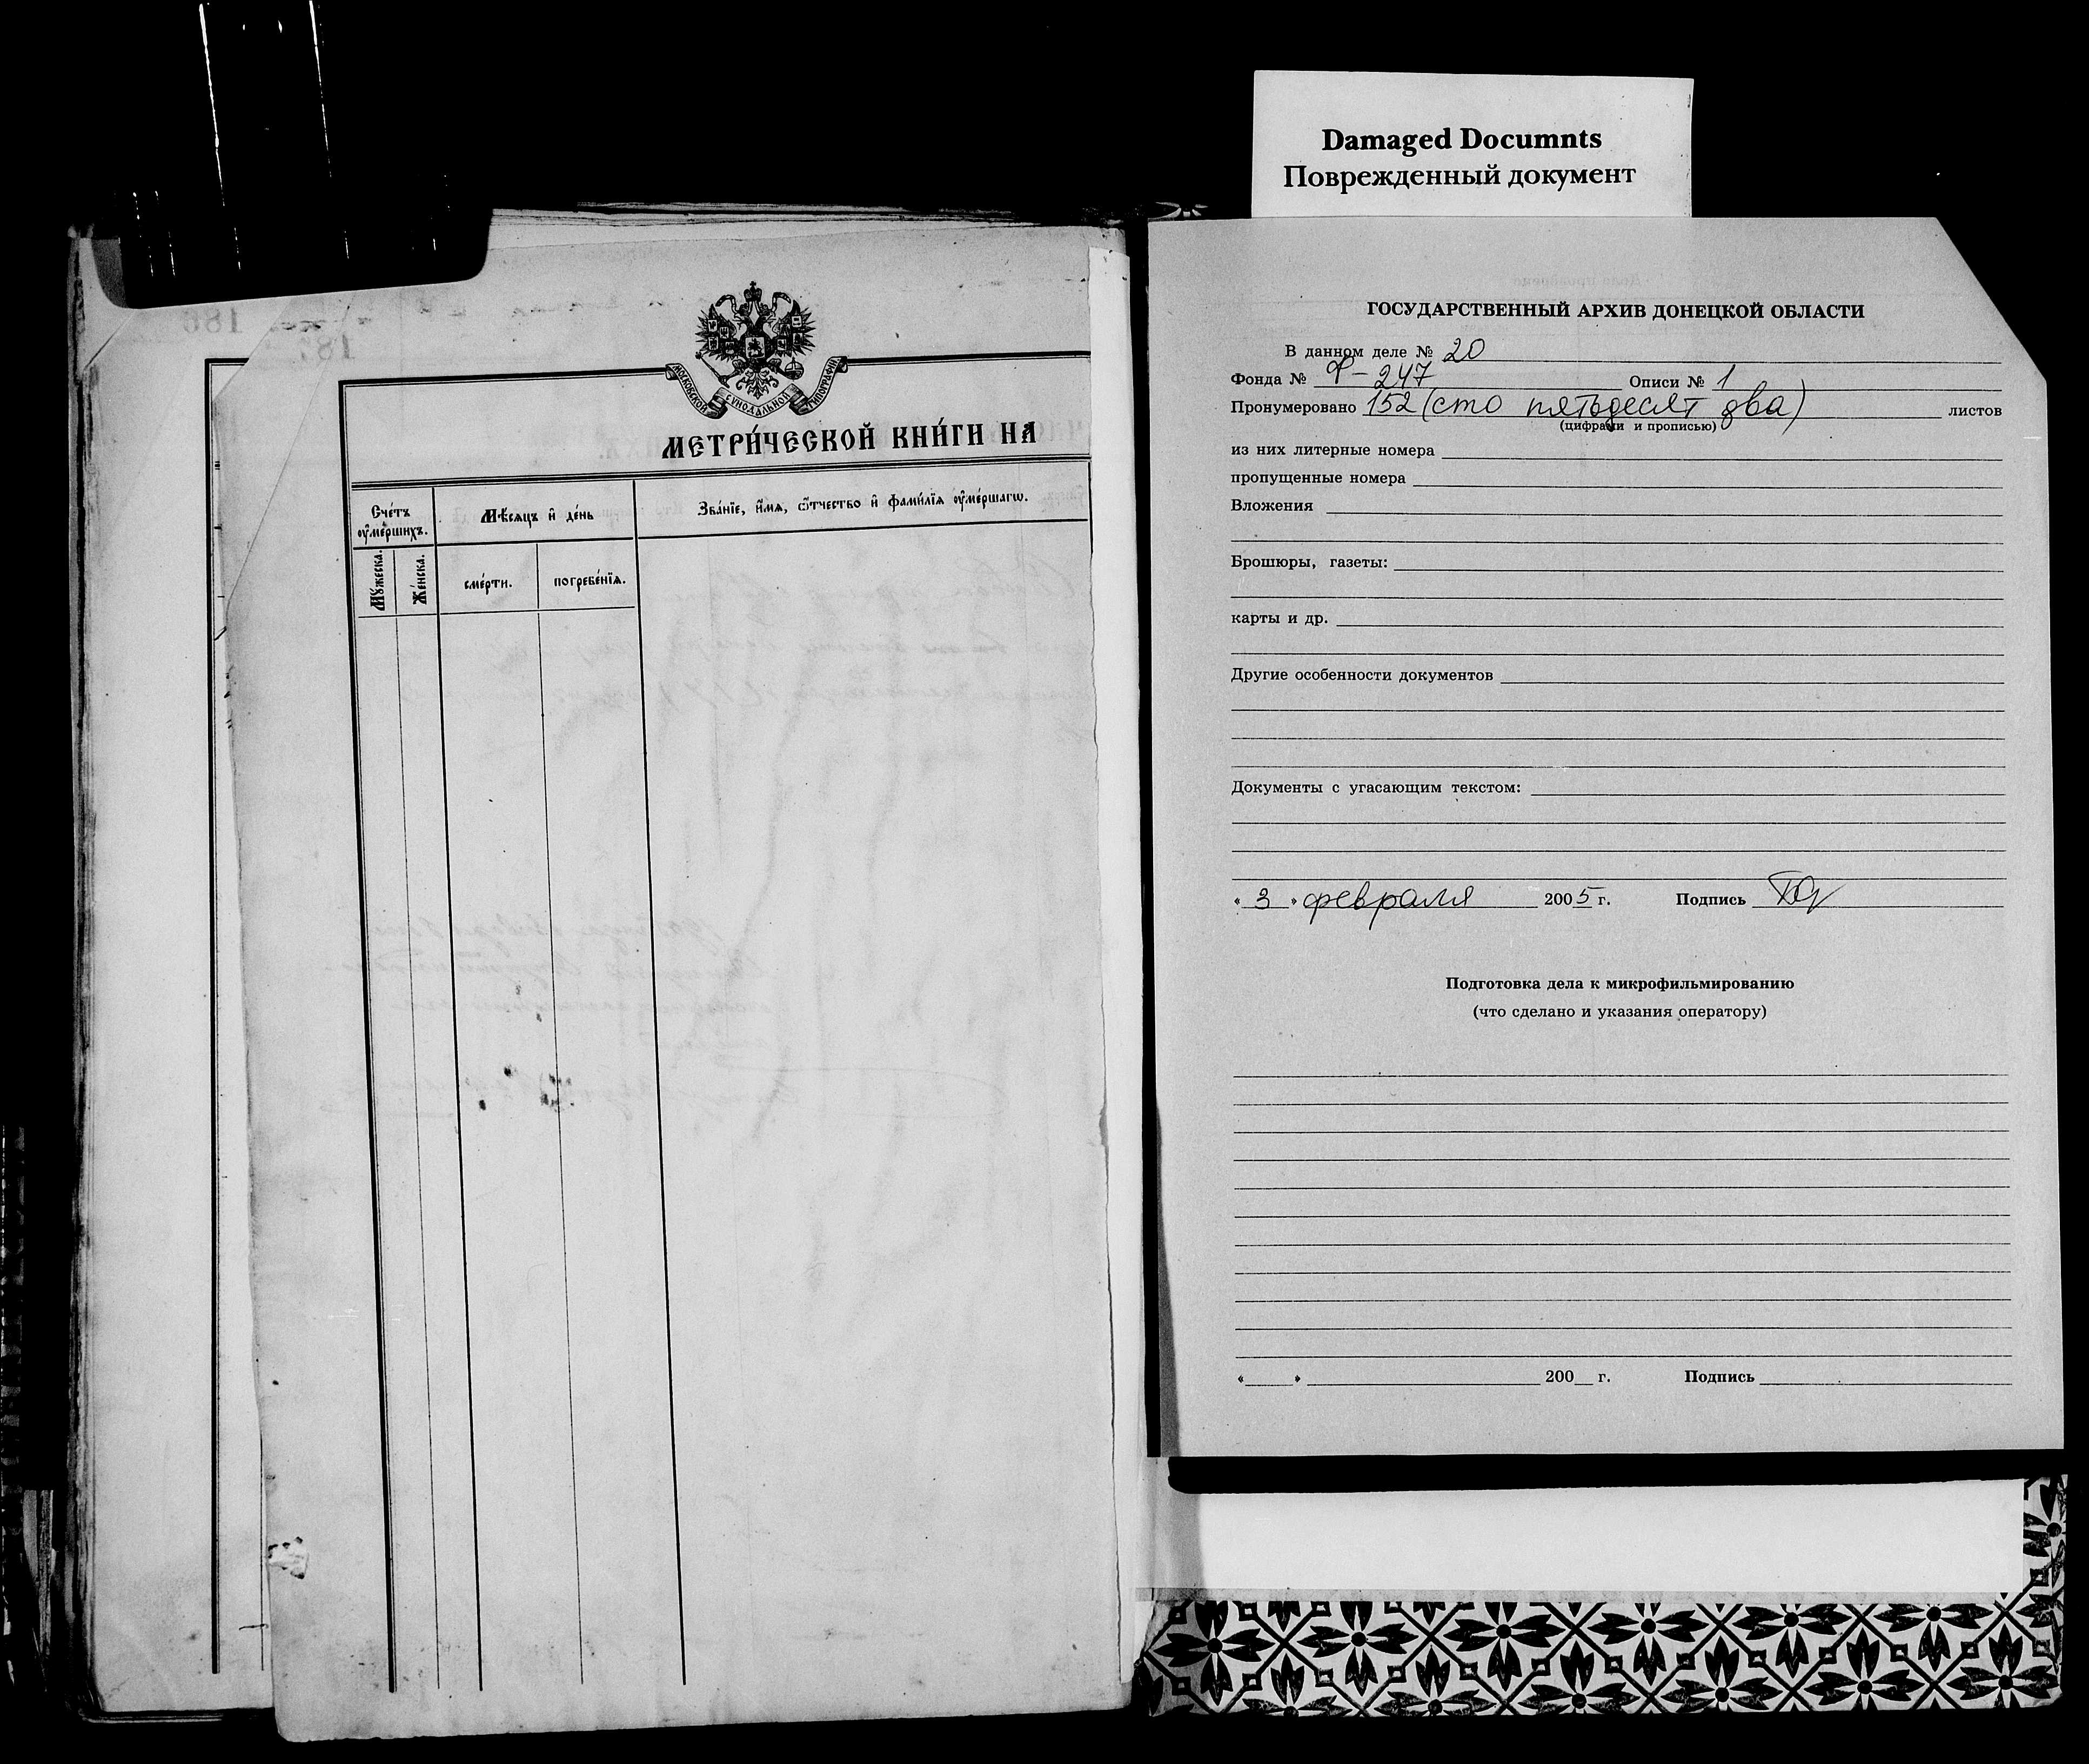 Damaged Documnts
Поврежденный документ
186
187
МОСКОВСКОЙ СѴНОДАЛЬНОЙ ТИПОГРАФІИ
МЕТРИ́ЧЕСКОЙ КНИ́ГИ НА
Сче́тъ ᲂу҆ме́ршихъ.
Мѣ́сѧцъ и҆ де́нь
Зва́нїе, и҆́мѧ, ѻ҆́тчество и҆ фами́лїѧ ᲂу҆ме́ршагѡ.
Мꙋ́жеска.
Же́нска.
сме́рти.
погребе́нїѧ.
ГОСУДАРСТВЕННЫЙ АРХИВ ДОНЕЦКОЙ ОБЛАСТИ
В данном деле № 20
Фонда № Ф-247 Описи № 1
Пронумеровано 152 (сто пятьдесят два) листов
(цифрами и прописью)
из них литерные номера
пропущенные номера
Вложения
Брошюры, газеты:
карты и др.
Другие особенности документов
Документы с угасающим текстом:
« 3 » февраля 2005 г. Подпись
Подготовка дела к микрофильмированию
(что сделано и указания оператору)
« » 200 г. Подпись